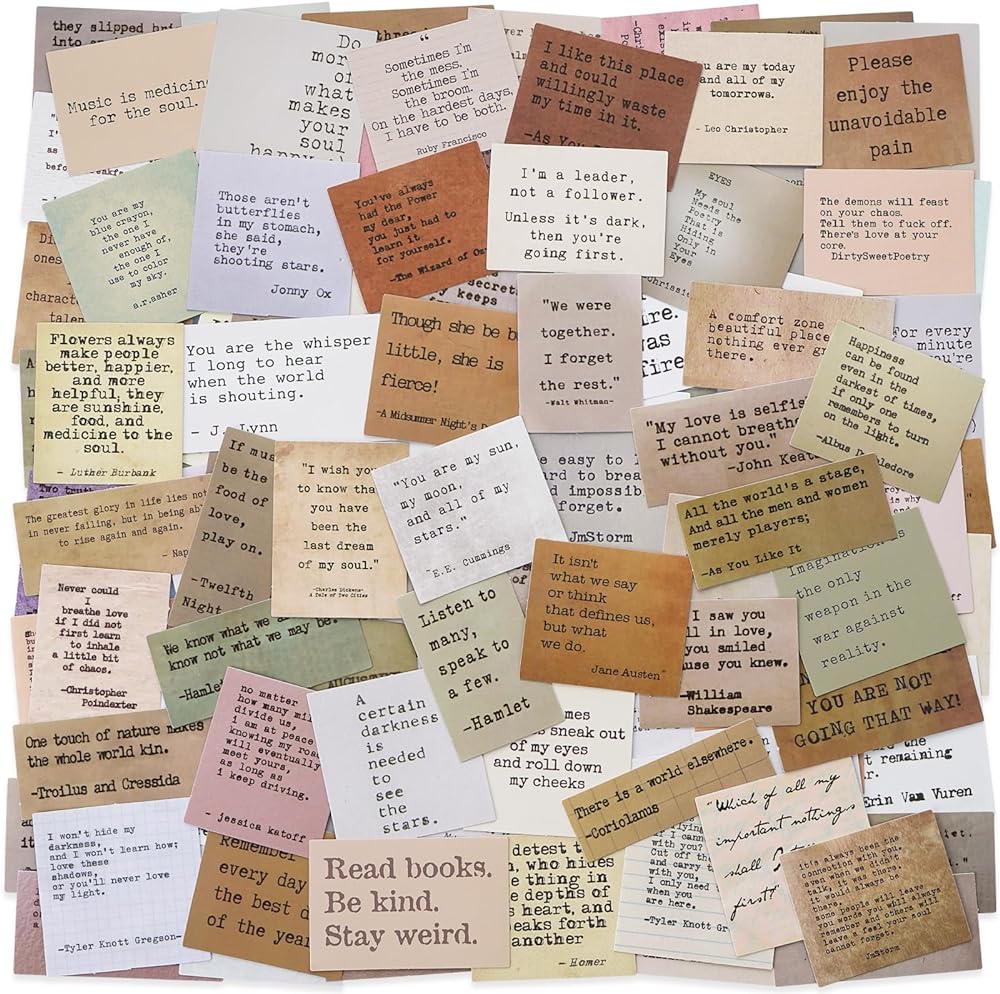 they slipped
Music is medicine
for the soul.
Do
more
of
what
makes
your
soul
“
Sometimes I'm
the mess.
Sometimes I'm
the broom.
On the hardest days,
I have to be both.
Ruby Francisco
I like this place
and could
willingly waste
my time in it.
-As You
are my today
and all of my
tomorrows.
- Leo Christopher
Please
enjoy the
unavoidable
pain
You are my
blue crayon,
the one I
never have
enough of,
the one I
use to color
my sky.
a.r.asher
Those aren't
butterflies
in my stomach,
she said,
they're
shooting stars.
Jonny Ox
You've always
had the Power
my dear,
you just had to
learn it
for yourself.
-The Wizard of Oz
I'm a leader,
not a follower.
Unless it's dark,
then you're
going first.
EYES
My soul
Needs the
Poetry
That is
Hiding
Only in
Your
Eyes
The demons will feast
on your chaos.
Tell them to fuck off.
There's love at your
core.
DirtySweetPoetry
keeps
Flowers always
make people
better, happier,
and more
helpful, they
are sunshine,
food, and
medicine to the
soul.
- Luther Burbank
You are the whisper
I long to hear
when the world
is shouting.
- J. Lynn
Though she be
little, she is
fierce!
-A Midsummer Night's
"We were
together.
I forget
the rest."
-Walt Whitman-
was
fire
A comfort zone
beautiful place
nothing ever
there.
For every
minute
you're
Happiness
can be found
even in the
darkest of times,
if only one
remembers to turn
on the light.
-Albus Dumbledore
"My love is
I cannot
without you."
-John
The greatest glory in life lies not
in never failing, but in being
to rise again and again.
If
be the
food of
love,
play on.
-Twelfth
Night
"I wish you
to know that
you have
been the
last dream
of my soul."
-Charles Dickens-
A Tale of Two Cities
"You are my sun,
my moon,
and all of my
stars."
~E.E. Cummings
easy to
forget.
JmStorm
All the world's a stage,
And all the men and women
merely players;
-As You Like It
Imagination is
the only
weapon in the
war against
reality.
Never could
I
breathe love
if I did not
first learn
to inhale
a little bit
of chaos.
-Christopher
Poindexter
We know what we
know not what we may be.
-Hamlet
Listen to
many,
speak to
a few.
-Hamlet
It isn't
what we say
or think
that defines us,
but what
we do.
Jane Austen"
I saw you
in love,
you smiled
you knew.
-William
Shakespeare
YOU ARE NOT
GOING THAT WAY!
One touch of nature makes
the whole world kin.
-Troilus and Cressida
no matter
how many
divide us,
i am at peace
knowing my
will eventually
meet yours,
as long as
i keep driving.
- jessica katoff
A
certain
darkness
is
needed
to
see
the
stars.
sneak out
of my eyes
and roll down
my cheeks
There is a world elsewhere.
-Coriolanus
the
remaining
Erin Van Vuren
I won't hide my
darkness,
and I won't learn how;
love these
shadows,
or you'll never love
my light.
-Tyler Knott Gregson-
Remember
every day
the best
of the
Read books.
Be kind.
Stay weird.
who hides
thing in
depths of
heart, and
forth
another
- Homer
with you?
Cut off
and carry
with you,
I only need
when you
are here.
-Tyler Knott
"Which of all my
important nothings
shall
first?"
it's always been the
connection with you,
even when we didn't
talk, it was there.
it would always be
there.
some people will leave
you words you will always
remember and others will
leave a feel your soul
cannot forget.
JmStorm